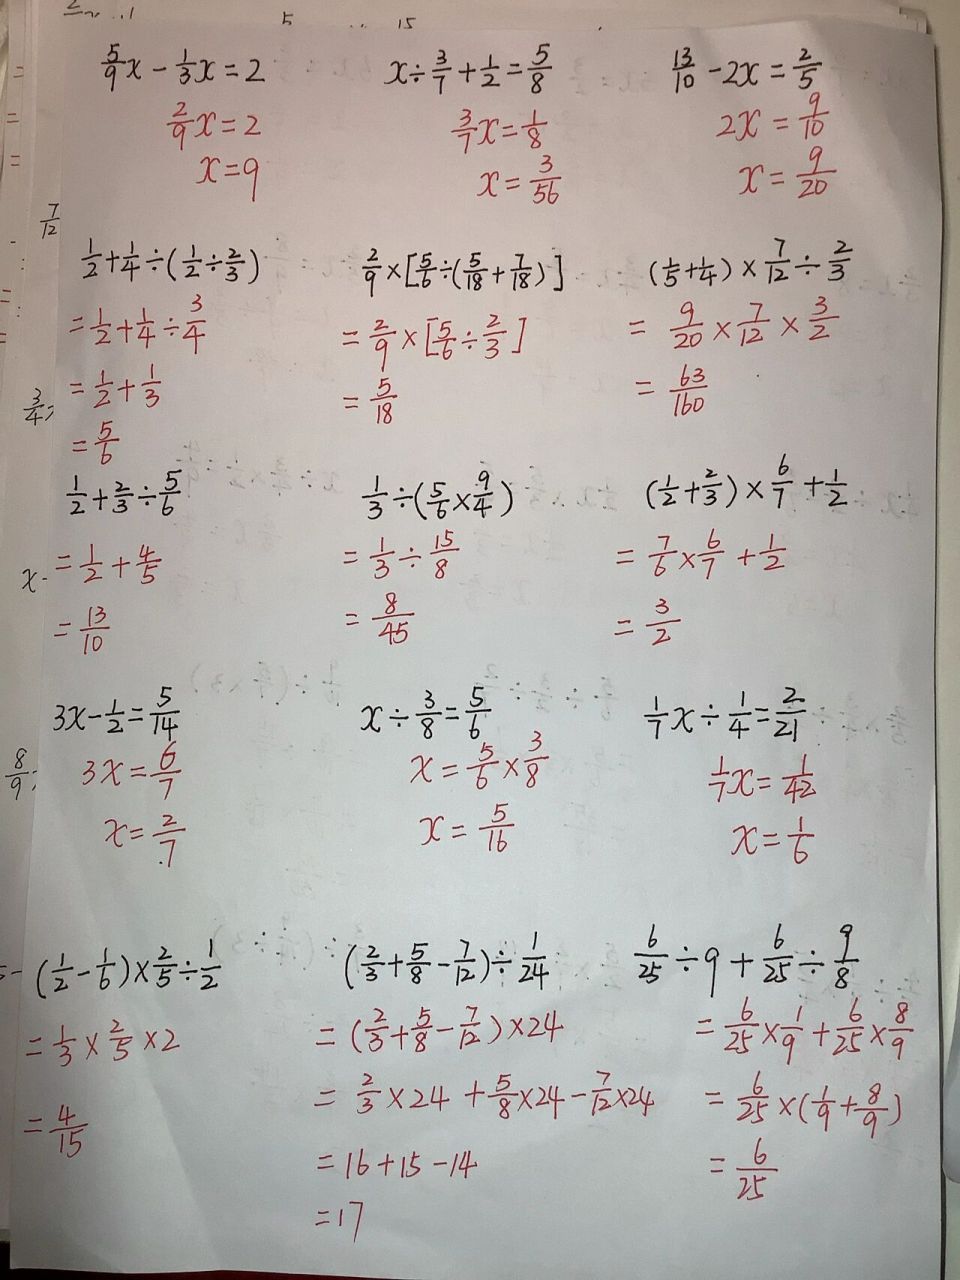 5/9x - 1/3x = 2
2/9x = 2
x = 9
x ÷ 3/7 + 1/2 = 5/8
3/7x = 1/8
x = 3/56
13/10 - 2x = 2/5
2x = 9/10
x = 9/20
1/2 + 1/4 ÷ (1/2 ÷ 2/3)
= 1/2 + 1/4 ÷ 3/4
= 1/2 + 1/3
= 5/6
2/9 × [5/6 ÷ (5/18 + 7/18)]
= 2/9 × [5/6 ÷ 2/3]
= 5/18
(1/5 + 1/4) × 7/12 ÷ 2/3
= 9/20 × 7/12 × 3/2
= 63/160
1/2 + 2/3 ÷ 5/6
= 1/2 + 4/5
= 13/10
1/3 ÷ (5/6 × 9/4)
= 1/3 ÷ 15/8
= 8/45
(1/2 + 2/3) × 6/7 + 1/2
= 7/6 × 6/7 + 1/2
= 3/2
3x - 1/2 = 5/14
3x = 6/7
x = 2/7
x ÷ 3/8 = 5/6
x = 5/6 × 3/8
x = 5/16
1/7x ÷ 1/4 = 2/21
1/7x = 1/42
x = 1/6
(1/2 - 1/6) × 2/5 ÷ 1/2
= 1/3 × 2/5 × 2
= 4/15
(2/3 + 5/8 - 7/12) ÷ 1/24
= (2/3 + 5/8 - 7/12) × 24
= 2/3 × 24 + 5/8 × 24 - 7/12 × 24
= 16 + 15 - 14
= 17
6/25 ÷ 9 + 6/25 ÷ 9/8
= 6/25 × 1/9 + 6/25 × 8/9
= 6/25 × (1/9 + 8/9)
= 6/25
7/12
3/4
x -
8/9